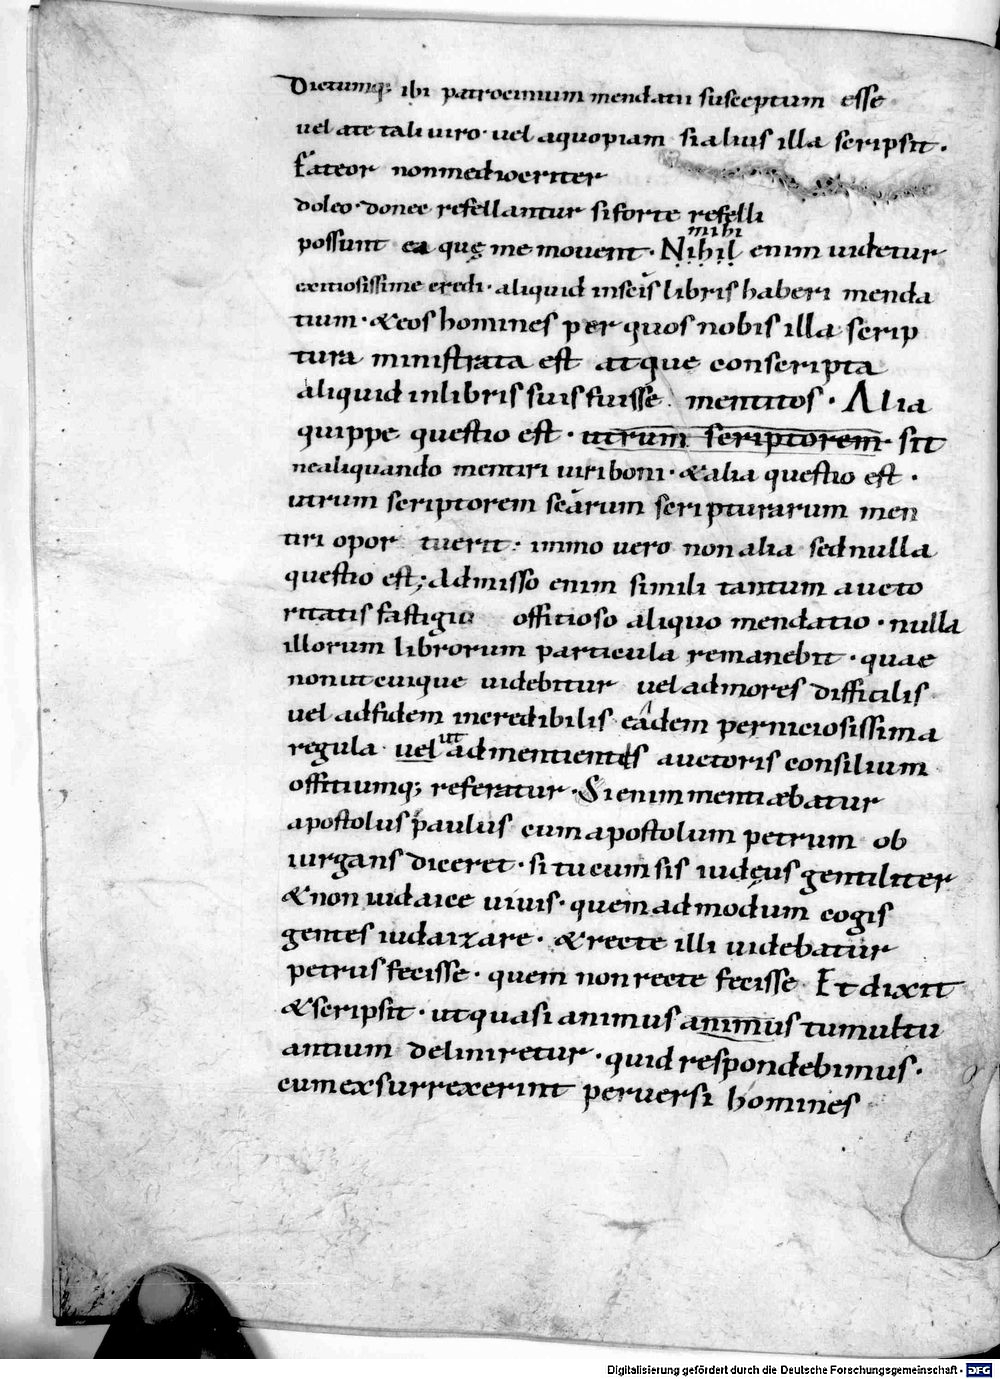 Dictumq; ibi patrocinium mendatii susceptum esse
uel ate tali uiro · uel aquopiam si alius illa scripsit ·
Fateor nonmediocriter
doleo · donec refellantur siforte refelli
possunt ea quę me mouent · Nihil mihi enim uidetur
exitiosissime credi · aliquid inscīs libris haberi menda
tium · &eos homines per quos nobis illa scrip
tura ministrata est atque conscripta
aliquid inlibris suis fuisse mentitos · Alia
quippe questio est · utrum scriptorem sit
nealiquando mentiri uiri boni · &alia questio est ·
utrum scriptorem scārum scripturarum men
tiri opor tuerit · immo uero non alia sed nulla
questio est; Admisso enim simili tantum aucto
ritatis fastigiu offitioso aliquo mendatio · nulla
illorum librorum particula remanebit · quae
non ut cuique uidebitur uel ad mores difficilis
uel adfidem incredibilis eadem perniciosissima
regula uel ut ad mentientis auctoris consilium
offitiumq; referatur · Si enim mentiebatur
apostolus paulus cum apostolum petrum ob
iurgans diceret · si tu cum sis iudęus gentiliter
&non iudaice uiuis · quem ad modum cogis
gentes iudaizare · &recte illi uidebatur
petrus fecisse · quem non recte fecisse Et dixit
&scripsit · ut quasi animus animus tumultu
antium deliniretur · quid respondebimus ·
cum exsurrexerint peruersi homines
Digitalisierung gefördert durch die Deutsche Forschungsgemeinschaft - DFG